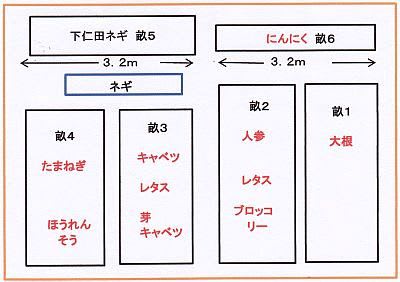 下仁田ネギ 畝5
にんにく 畝6
3.2m
3.2m
ネギ
畝4
たまねぎ
ほうれん
そう
畝3
キャベツ
レタス
芽
キャベツ
畝2
人参
レタス
ブロッコ
リー
畝1
大根